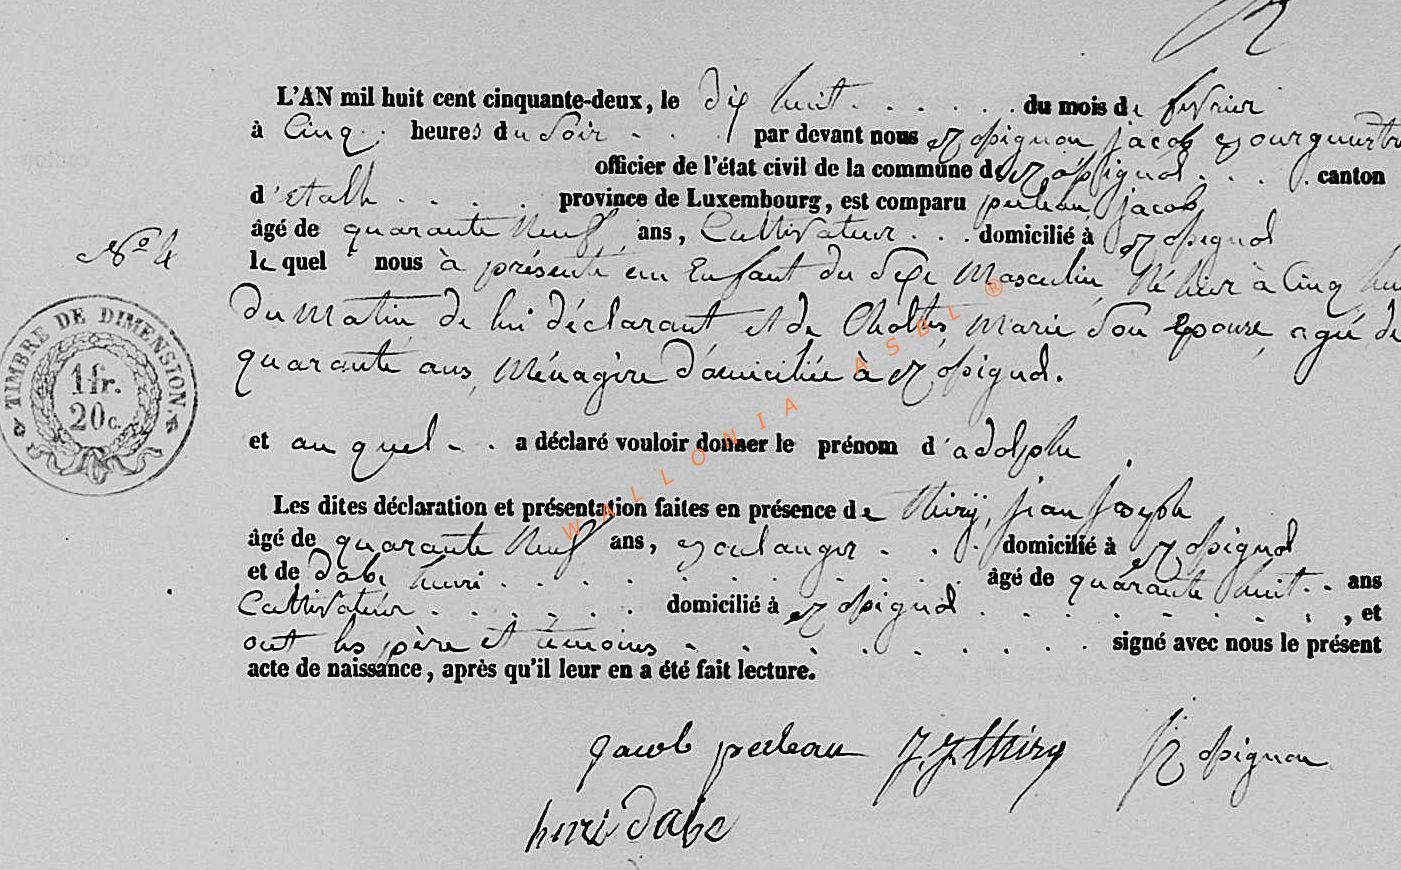 L'AN mil huit cent cinquante-deux, le dix huit . . . . . . du mois de fevrier
à Cinq . heures du Soir . . . par devant nous Rossignon jacob Bourguestre
officier de l'état civil de la commune de Rossignol . . . . canton
d'etalle . . . . province de Luxembourg, est comparu perleau jacob
âgé de quarante Neuf ans, Cultivateur . . . domicilié à Rossignol
N° 4
le quel nous à présenté un Enfant du Sexe Masculin, Né hier à Cinq
du Matin de lui déclarant et de Marie Son Epouse, agée de
quarante ans, Ménagère domiciliée à Rossignol.
TIMBRE DE DIMENSION.
1 fr.
20 c.
et au quel . . a déclaré vouloir donner le prénom d'adolphe .
Les dites déclaration et présentation faites en présence de thiry, jean joseph
âgé de quarante Neuf ans, Boulanger . . . domicilié à Rossignol
et de Dabe henri . . . . . . . . . . . âgé de quarante huit . . ans
Cultivateur . . . . . . domicilié à Rossignol . . . . . . . . , et
ont les père et témoins . . . . . . . . . . signé avec nous le présent
acte de naissance, après qu'il leur en a été fait lecture.
jacob perleau J. J. thiry J Rossignon
henri Dabe
WALLONIA ASBL ®